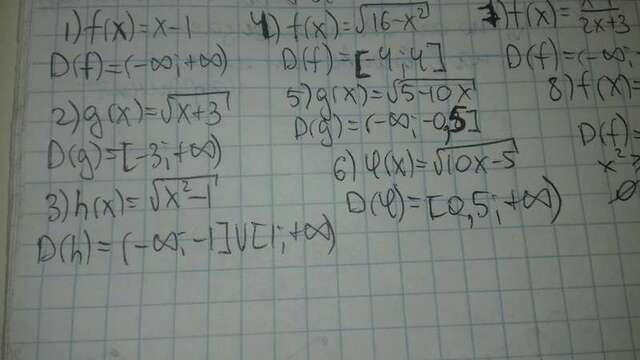 1) f(x)=x-1
D(f)=(-∞;+∞)
2) g(x)=√x+3
D(g)=[-3;+∞)
3) h(x)=√x²-1
D(h)=(-∞;-1]U[1;+∞)
4) f(x)=√16-x²
D(f)=[-4;4]
5) g(x)=√5-10x
D(g)=(-∞;-0,5]
6) φ(x)=√10x-5
D(φ)=[0,5;+∞)
7) f(x)=
2x+3
D(f)=(-∞;
8) f(x)=
D(f)=